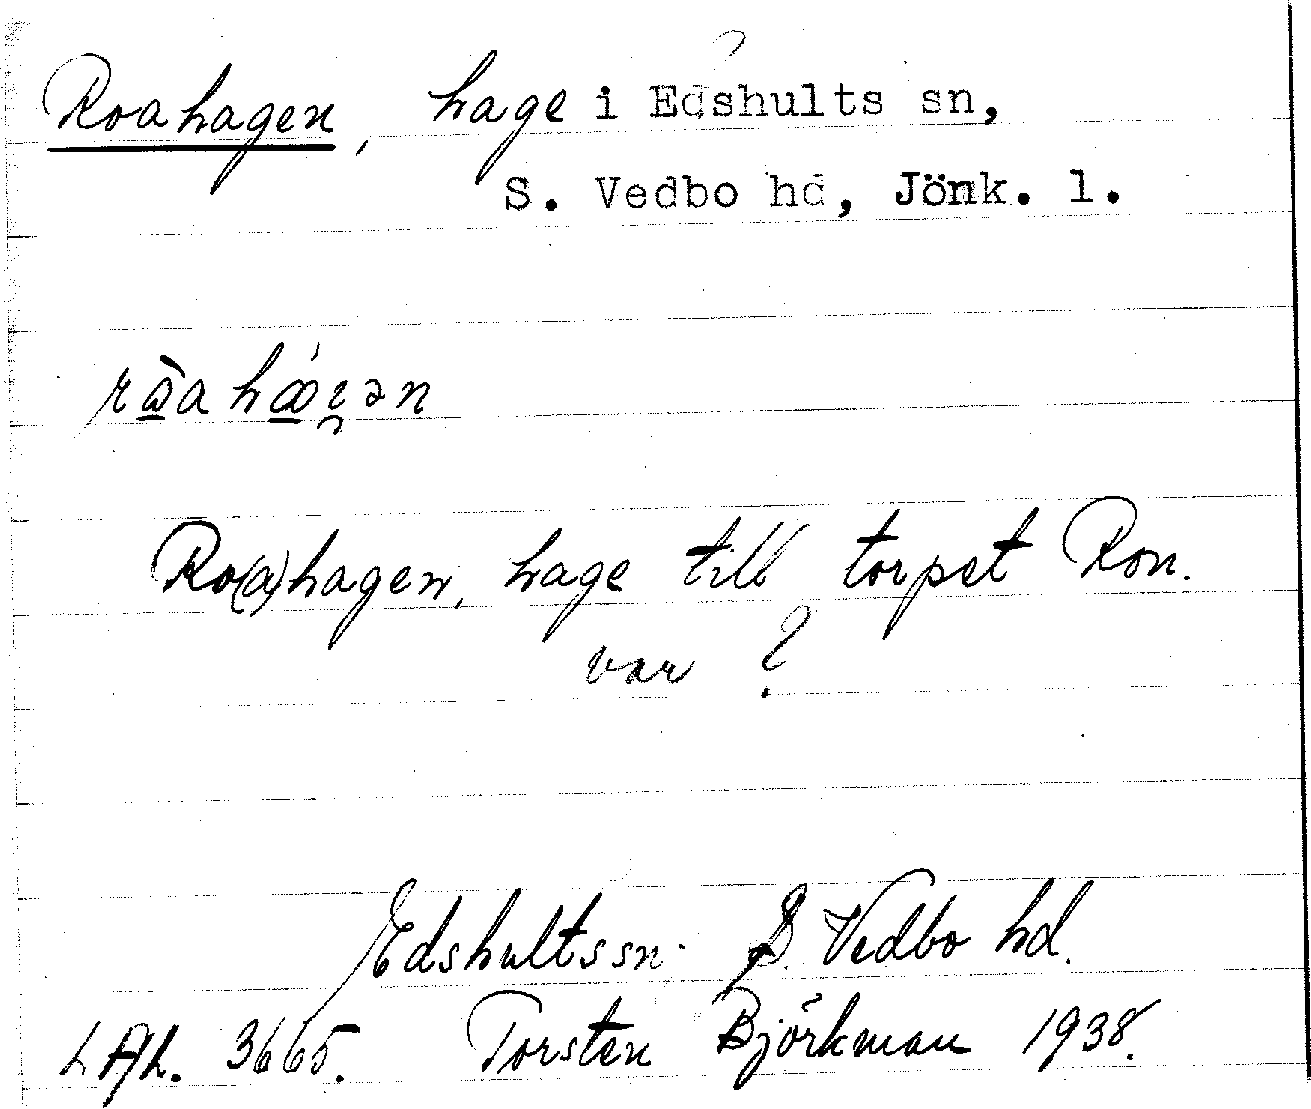 Roahagen, hage i Edshults sn,
S. Vedbo hd, Jönk. l.
Ro(a)hagen, hage till torpet Ron.
var ?
Edshults sn. S. Vedbo hd.
3665. Torsten Björkman 1938.